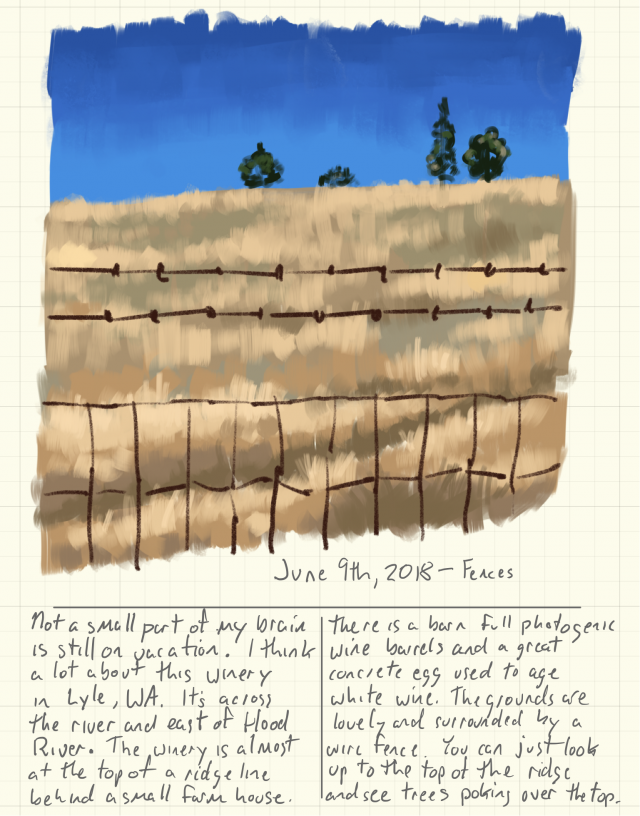 June 9th, 2018 – Fences
Not a small part of my brain
is still on vacation. I think
a lot about this winery
in Lyle, WA. It's across
the river and east of Hood
River. The winery is almost
at the top of a ridge line
behind a small farm house.
there is a barn full photogenic
wine barrels and a great
concrete egg used to age
white wine. The grounds are
lovely and surrounded by a
wire fence. You can just look
up to the top of the ridge
and see trees poking over the top.